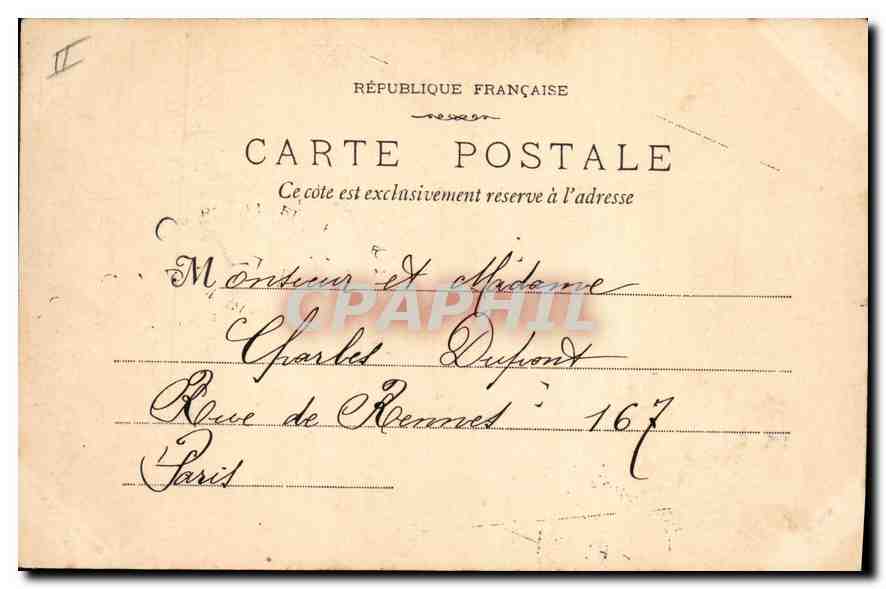 II
RÉPUBLIQUE FRANÇAISE
CARTE POSTALE
Ce côté est exclusivement reservé à l'adresse
Monsieur et Madame
CPAPHIL
Charles Dupont
Rue de Rennes 167
Paris